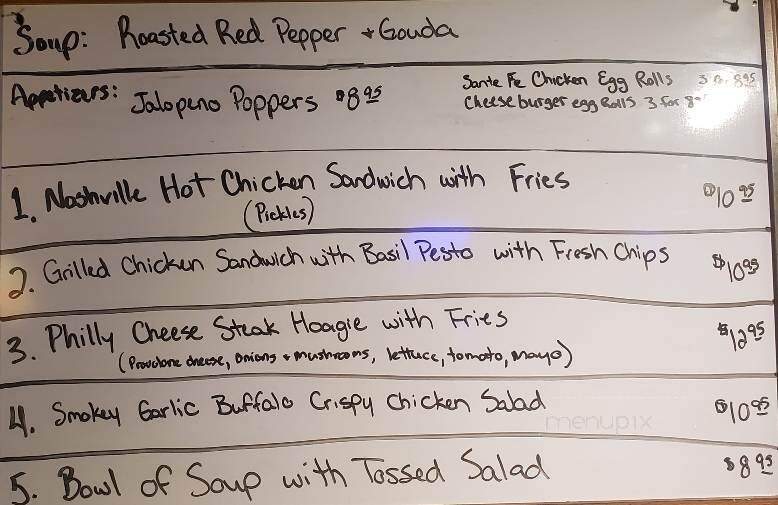 Soup: Roasted Red Pepper + Gouda
Appetizers: Jalopeno Poppers $8.95
Sante Fe Chicken Egg Rolls 3 for 8.95
Cheeseburger egg Rolls 3 for
1. Nashville Hot Chicken Sandwich with Fries $10.95
(Pickles)
2. Grilled Chicken Sandwich with Basil Pesto with Fresh Chips $10.95
3. Philly Cheese Steak Hoagie with Fries $12.95
(Provolone cheese, onions + mushrooms, lettuce, tomato, mayo)
4. Smokey Garlic Buffalo Crispy Chicken Salad $10.95
menupix
5. Bowl of Soup with Tossed Salad $8.95